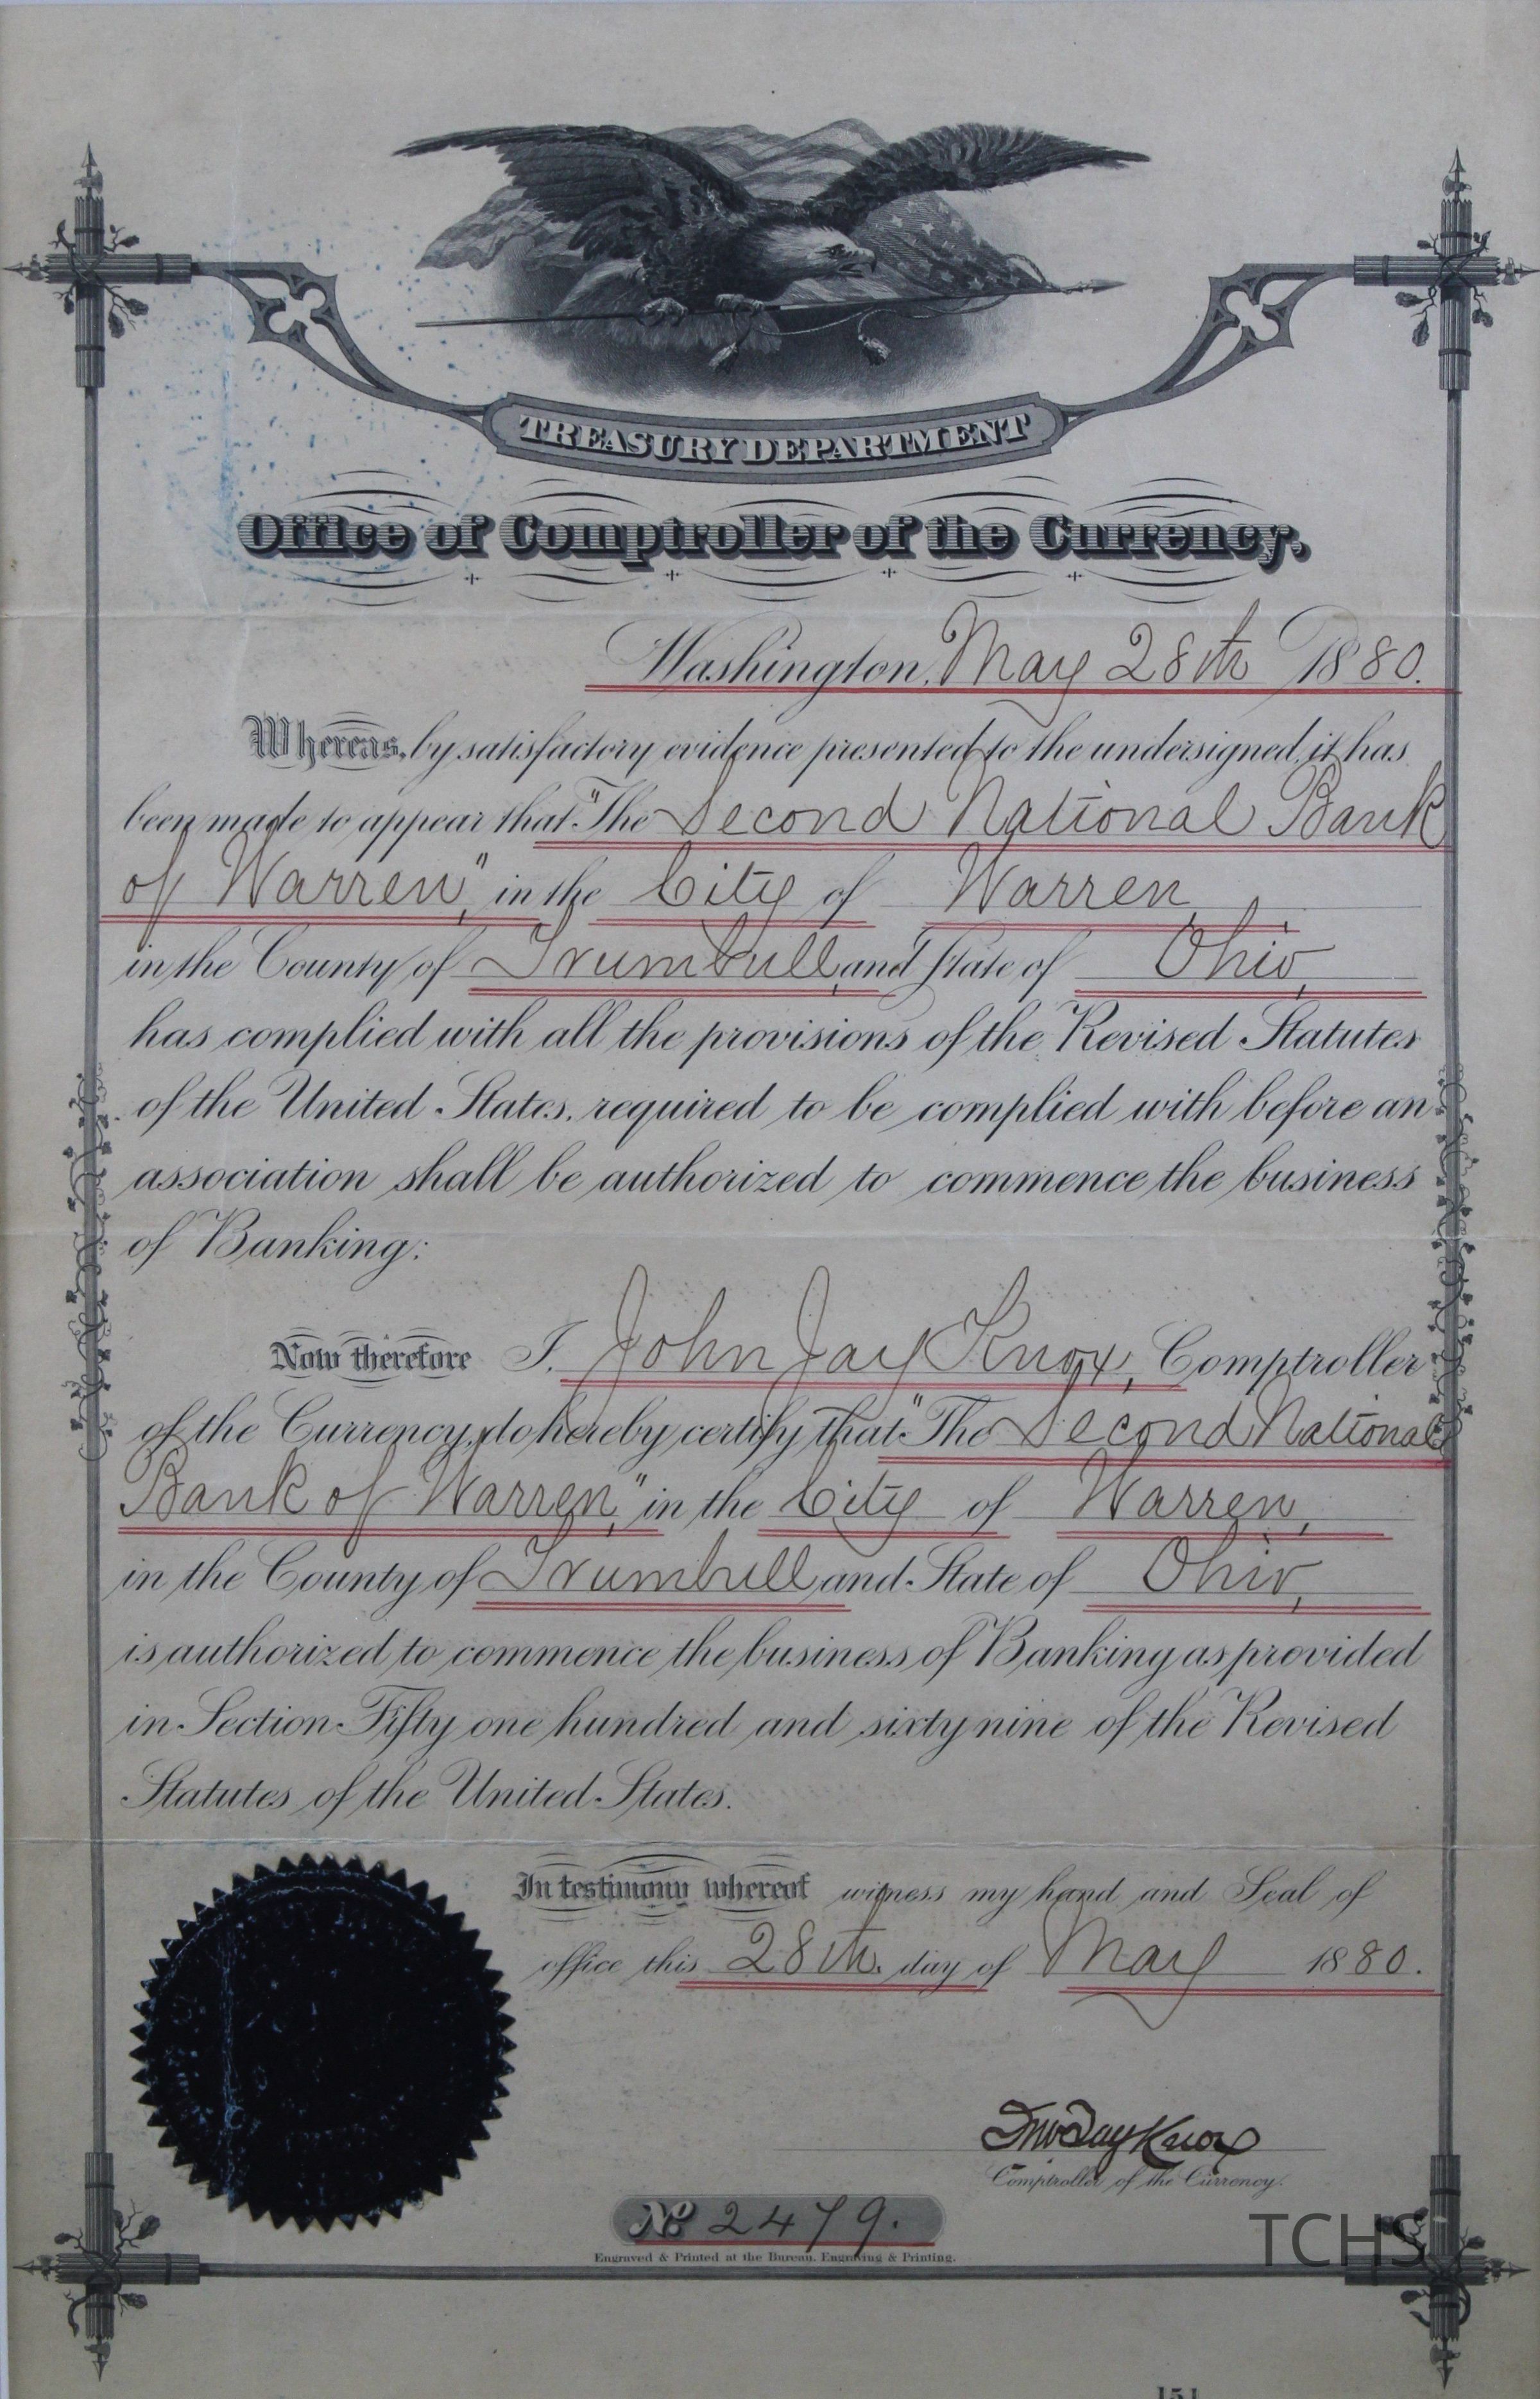 TREASURY DEPARTMENT
Office of Comptroller of the Currency,
Washington, May 28th 1880.
Whereas, by satisfactory evidence presented to the undersigned, it has
been made to appear that "The Second National Bank
of Warren," in the City of Warren,
in the County of Trumbull, and State of Ohio,
has complied with all the provisions of the Revised Statutes
of the United States, required to be complied with before an
association shall be authorized to commence the business
of Banking:
Now therefore I, John Jay Knox, Comptroller
of the Currency, do hereby certify that "The Second National
Bank of Warren," in the City of Warren,
in the County of Trumbull and State of Ohio,
is authorized to commence the business of Banking as provided
in Section Fifty one hundred and sixty nine of the Revised
Statutes of the United States.
In testimony whereof witness my hand and Seal of
office this 28th. day of May 1880.
Jno Jay Knox
Comptroller of the Currency.
No 2479.
Engraved & Printed at the Bureau, Engraving & Printing.
TCHS
151